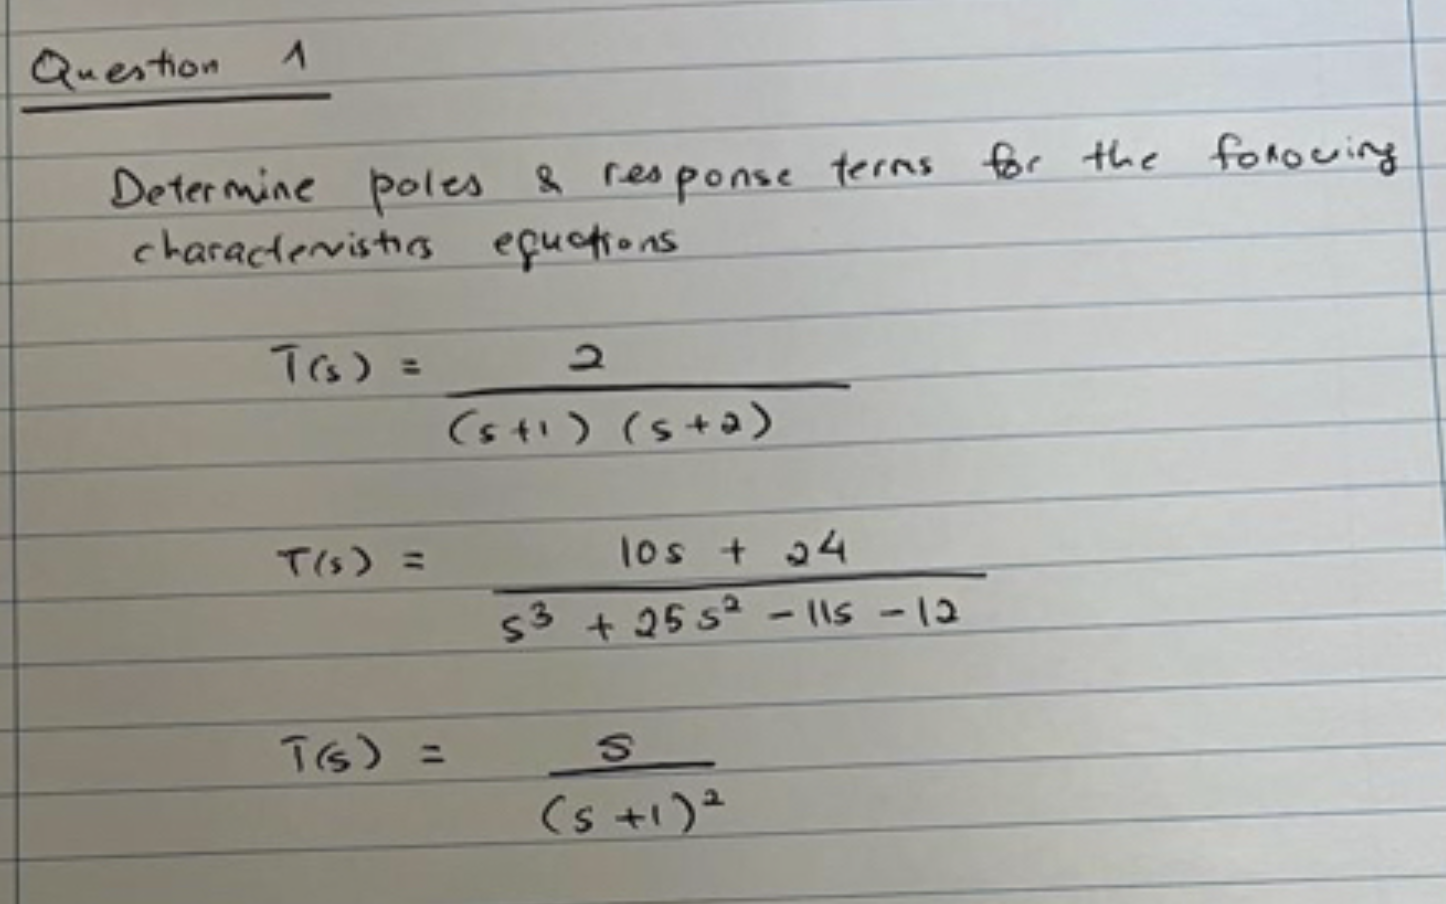 Question 1
Determine poles & response terms for the following
characteristics equations
T(s) = 2
(s+1) (s+2)
T(s) = 10s + 24
s³ + 25s² - 11s - 12
T(s) = s
(s+1)²